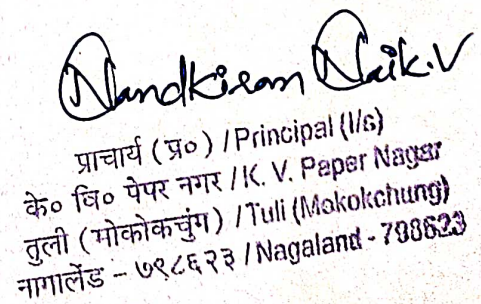 Nandkiran Naik.V
प्राचार्य (प्र०) / Principal (I/c)
के० वि० पेपर नगर / K. V. Paper Nagar
तुली (मोकोकचुंग) / Tuli (Mokokchung)
नागालेंड - ७९८६२३ / Nagaland - 798623